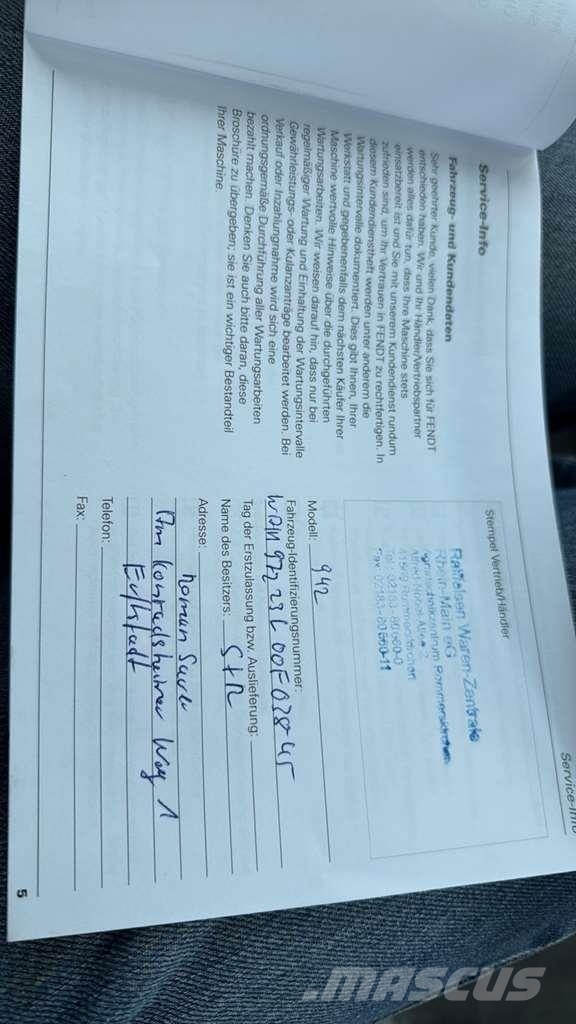 Service-Info
Service-Info
Fahrzeug- und Kundendaten
Sehr geehrter Kunde, vielen Dank, dass Sie sich für FENDT
entschieden haben. Wir und Ihr Händler/Vertriebspartner
werden alles dafür tun, dass Ihre Maschine stets
einsatzbereit ist und Sie mit unserem Kundendienst rundum
zufrieden sind, um Ihr Vertrauen in FENDT zu rechtfertigen. In
diesem Kundendienstheft werden unter anderem die
Wartungsintervalle dokumentiert. Dies gibt Ihnen, Ihrer
Werkstatt und gegebenenfalls dem nächsten Käufer Ihrer
Maschine wertvolle Hinweise über die durchgeführten
Wartungsarbeiten. Wir weisen darauf hin, dass nur bei
regelmäßiger Wartung und Einhaltung der Wartungsintervalle
Gewährleistungs- oder Kulanzanträge bearbeitet werden. Bei
Verkauf oder Inzahlungnahme wird sich eine
ordnungsgemäße Durchführung aller Wartungsarbeiten
bezahlt machen. Denken Sie auch bitte daran, diese
Broschüre zu übergeben; sie ist ein wichtiger Bestandteil
Ihrer Maschine.
Stempel Vertrieb/Händler
Raiffeisen Waren-Zentrale
Rhein-Main eG
Rommerskirchen
2
41569 Rommerskirchen
Tel. 02183-80660-0
Fax 02183-80660-11
Modell: 942
Fahrzeug-Identifizierungsnummer:
Tag der Erstzulassung bzw. Auslieferung:
Name des Besitzers:
Adresse:
Weg 1
Erftstadt
Telefon:
Fax:
5
.mascus